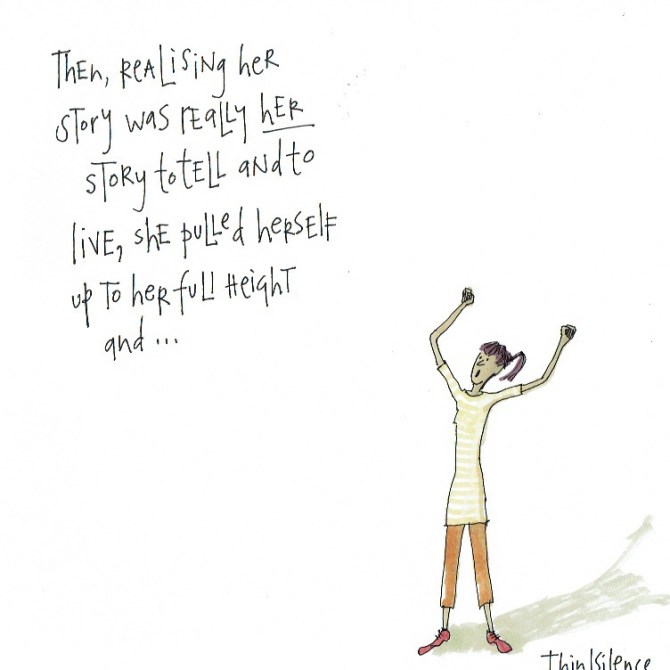 Then, realising her
story was really her
story to tell and to
live, she pulled herself
up to her full height
and ...
ThinkSilence